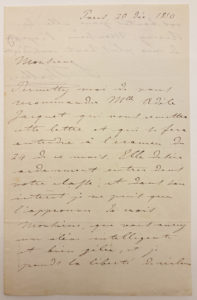 Paris, 20 Dec. 1850
Monsieur
Permettez moi de vous
recommander Mlle Adèle
Jacquet qui vous remettra
cette lettre et qui se fera
entendre à l'examen du
24 de ce mois. Elle désire
ardemment entrer dans
votre classe, et dans son
intérêt je ne puis que
l'approuver. Je crois
Monsieur, que vous aurez
une élève intelligente
et bien, et je
prends la liberté de